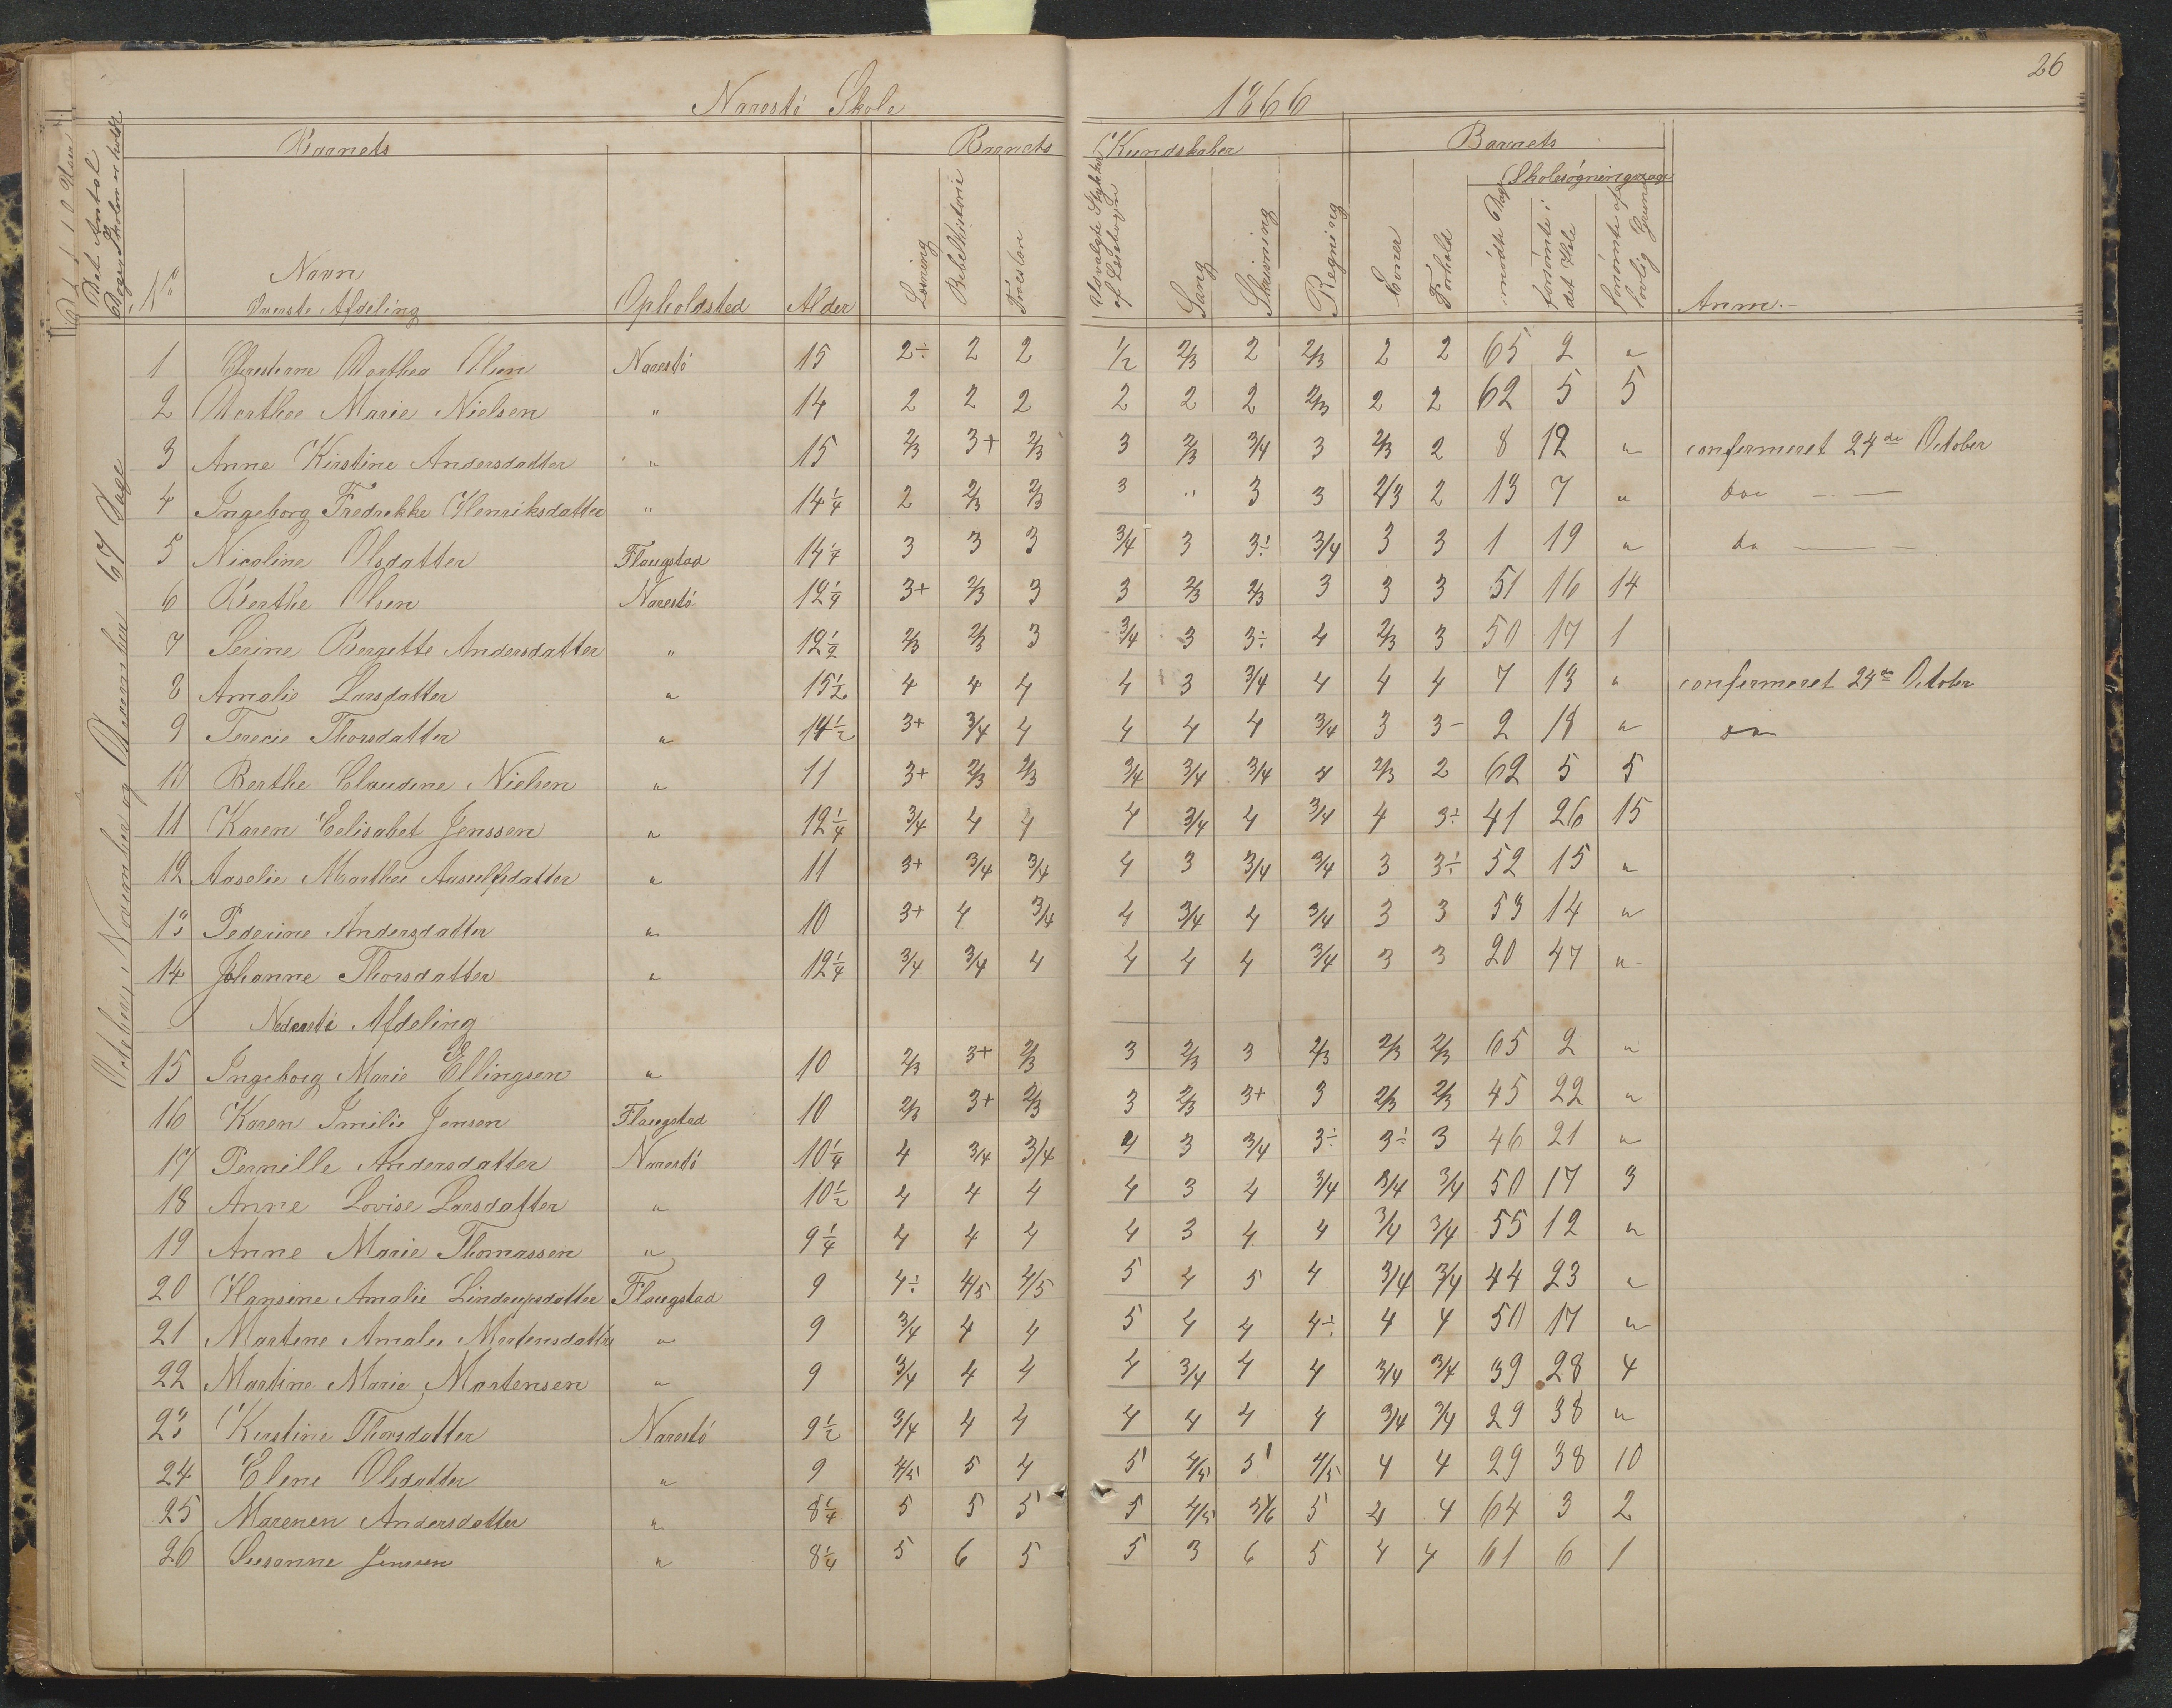 26
Narestö Skole 1866
Barnets Barnets Kundskaber Barnets
Skolesögningsdage
Det Antal
Dage Skolen er holdt
October, November og December 67 Dage
No Navn Opholdsted Alder Læsning Bibelhistorie Troeslære Udvalgte Stykker af Læsebogen Sang Skrivning Regning Evner Forhold mödte Dage forsömte i det Hele forsömte af lovlig Grund Anm.
Överste Afdeling
1 Christine Dorthea Olsen Narestö 15 2÷ 2 2 1/2 2/3 2 2/3 2 2 65 2 "
2 Dorthea Marie Nielsen " 14 2 2 2 2 2 2 2/3 2 2 62 5 5
3 Anne Kirstine Andersdatter " 15 2/3 3+ 2/3 3 2/3 3/4 3 2/3 2 8 12 " confermeret 24de October
4 Ingeborg Fredrekke Henriksdatter " 14 1/4 2 2/3 2/3 3 " 3 3 2/3 2 13 7 " do — —
5 Nicoline Olsdatter Flaugstad 14 1/4 3 3 3 3/4 3 3÷ 3/4 3 3 1 19 " do — —
6 Berthe Olsen Narestö 12 1/4 3+ 2/3 3 3 2/3 2/3 3 3 3 51 16 14
7 Serine Bergette Andersdatter " 12 1/2 2/3 2/3 3 3/4 3 3÷ 4 2/3 3 50 17 1
8 Amalie Larsdatter " 15 1/2 4 4 4 4 3 3/4 4 4 4 7 13 " confermeret 24de October
9 Terecie Thorsdatter " 14 1/2 3+ 3/4 4 4 4 4 3/4 3 3- 2 18 "
10 Berthe Claudine Nielsen " 11 3+ 2/3 2/3 3/4 3/4 3/4 4 2/3 2 62 5 5
11 Karen Eelisabet Jenssen " 12 1/4 3/4 4 4 4 3/4 4 3/4 4 3÷ 41 26 15
12 Aaselie Marthee Aasulfsdatter " 11 3+ 3/4 3/4 4 3 3/4 3/4 3 3÷ 52 15 "
13 Pederine Andersdatter " 10 3+ 4 3/4 4 3/4 4 3/4 3 3 53 14 "
14 Johanne Thorsdatter " 12 1/4 3/4 3/4 4 4 4 4 3/4 3 3 20 47 "
Nederste Afdeling
15 Ingeborg Marie Ellingsen " 10 2/3 3+ 2/3 3 2/3 3 2/3 2/3 2/3 65 2 "
16 Karen Imilie Jensen Flaugstad 10 2/3 3+ 2/3 3 2/3 3+ 3 2/3 2/3 45 22 "
17 Pernille Andersdatter Narestö 10 1/4 4 3/4 3/4 4 3 3/4 3÷ 3÷ 3 46 21 "
18 Anne Lovise Larsdatter " 10 1/2 4 4 4 4 3 4 3/4 3/4 3/4 50 17 3
19 Anne Marie Thomassen " 9 1/4 4 4 4 4 3 4 4 3/4 3/4 55 12 "
20 Hansine Amalie Lindrupsdatter Flaugstad 9 4÷ 4/5 4/5 5 4 5 4 3/4 3/4 44 23 "
21 Martine Amalie Mortensdatter " 9 3/4 4 4 5 4 4 4÷ 4 4 50 17 "
22 Martine Marie Martensen " 9 3/4 4 4 4 3/4 4 4 3/4 3/4 39 28 4
23 Kirstine Thorsdatter Narestö 9 1/2 3/4 4 4 4 4 4 4 3/4 3/4 29 38 "
24 Elene Olsdatter " 9 4/5 5 4 5 4/5 5 4/5 4 4 29 38 10
25 Marenen Andersdatter " 8 1/4 5 5 5 5 4/5 5/6 5 4 4 64 3 2
26 Susanne Jenssen " 8 1/4 5 6 5 5 3 6 5 4 4 61 6 1